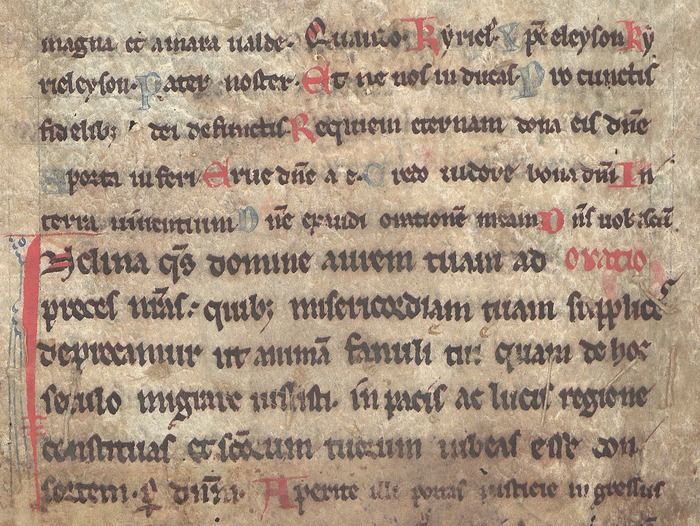 magna et amara ualde. Quando. Kyriel. X pe eleyson Ky
rieleyson. Pater noster. Et ne nos in ducas. Pro cunctis
fidelib; dei defunctis Requiem eternam dona eis dne
A porta inferi Erue dne a e. Credo uidere bona dni In
terra uiuentium Dne exaudi orationē meam Dns uob
Inclina qs domine aurem tuam ad oratio
preces nras. quib; misericordiam tuam supplices
deprecamur ut animā famuli tui quam de hoc
seculo migrare iussisti. in pacis ac lucis regione
constituas et scōrum tuorum iubeas esse con
sortem. p dnm. Aperite illi portas iusticie in gressus